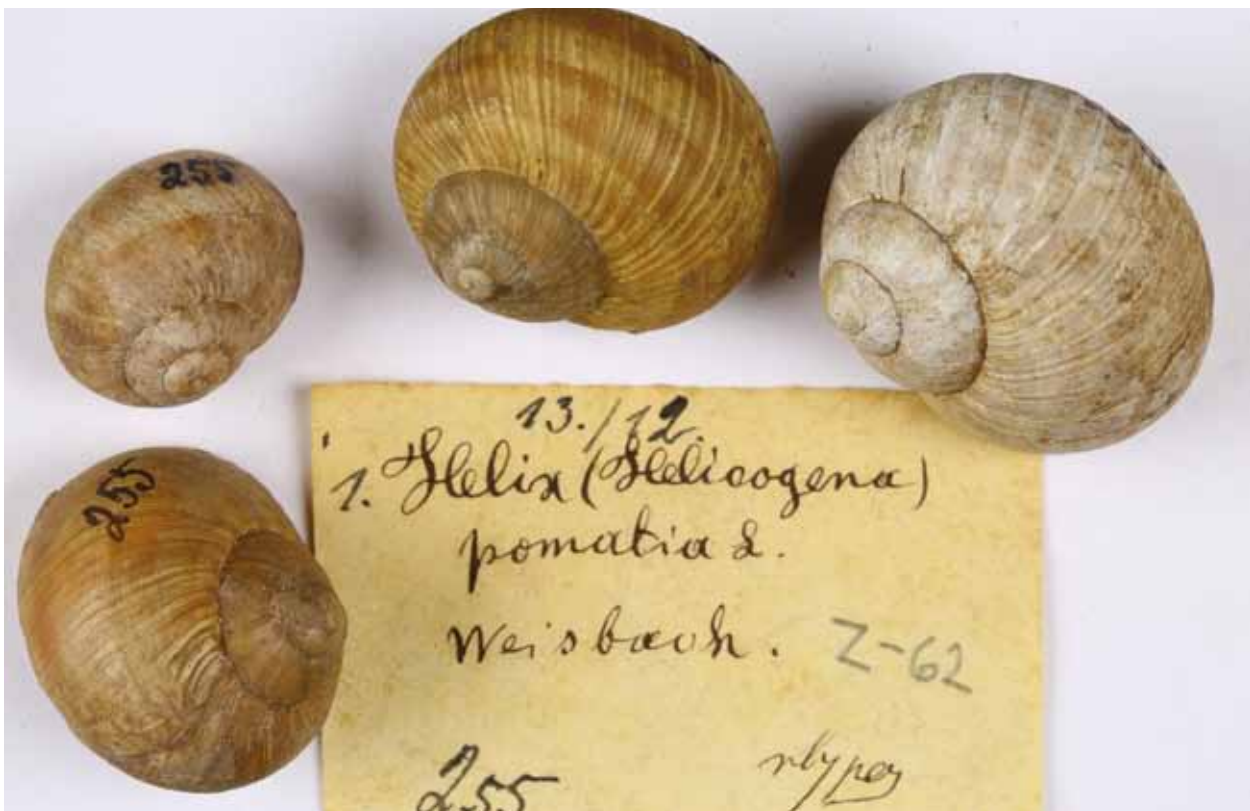 255
255
13./12.
1. Helix (Helicogena)
pomatia L.
Weisbach.
Z-62
255